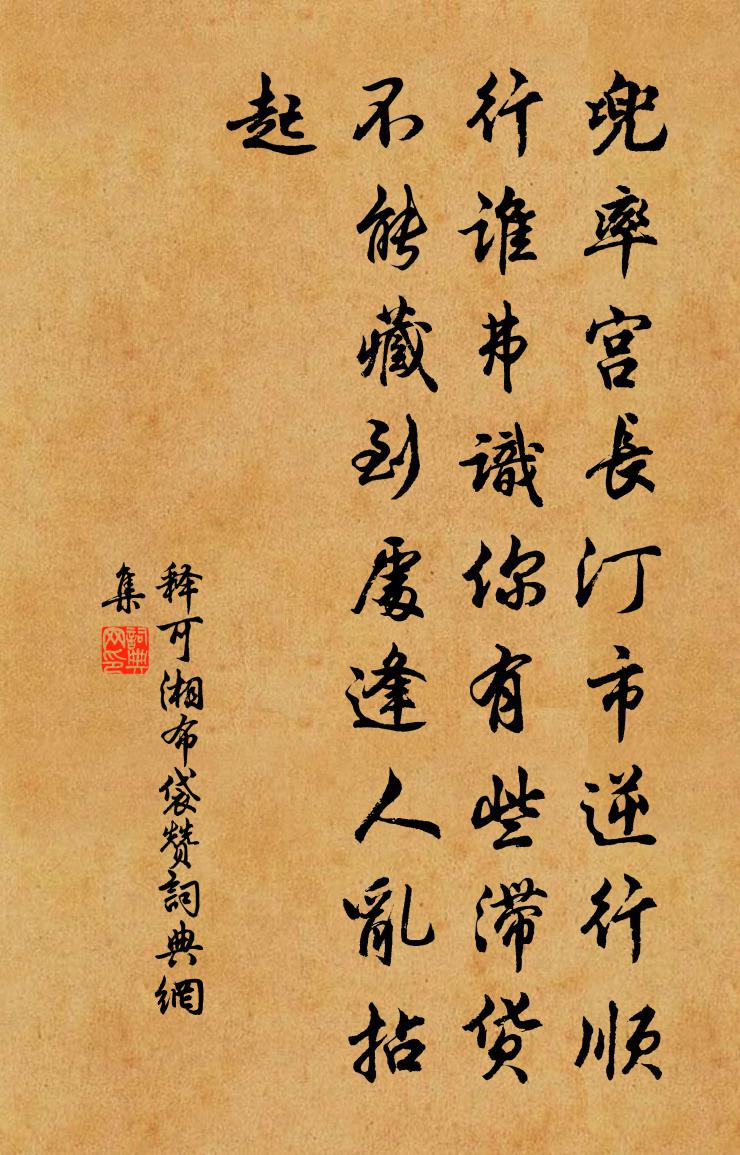 兜率宫長汀市逆行順
行谁弗識你有些滞貨
不能藏到處逢人亂拈
起
释可湘布袋赞詞典網
集
詞典网印